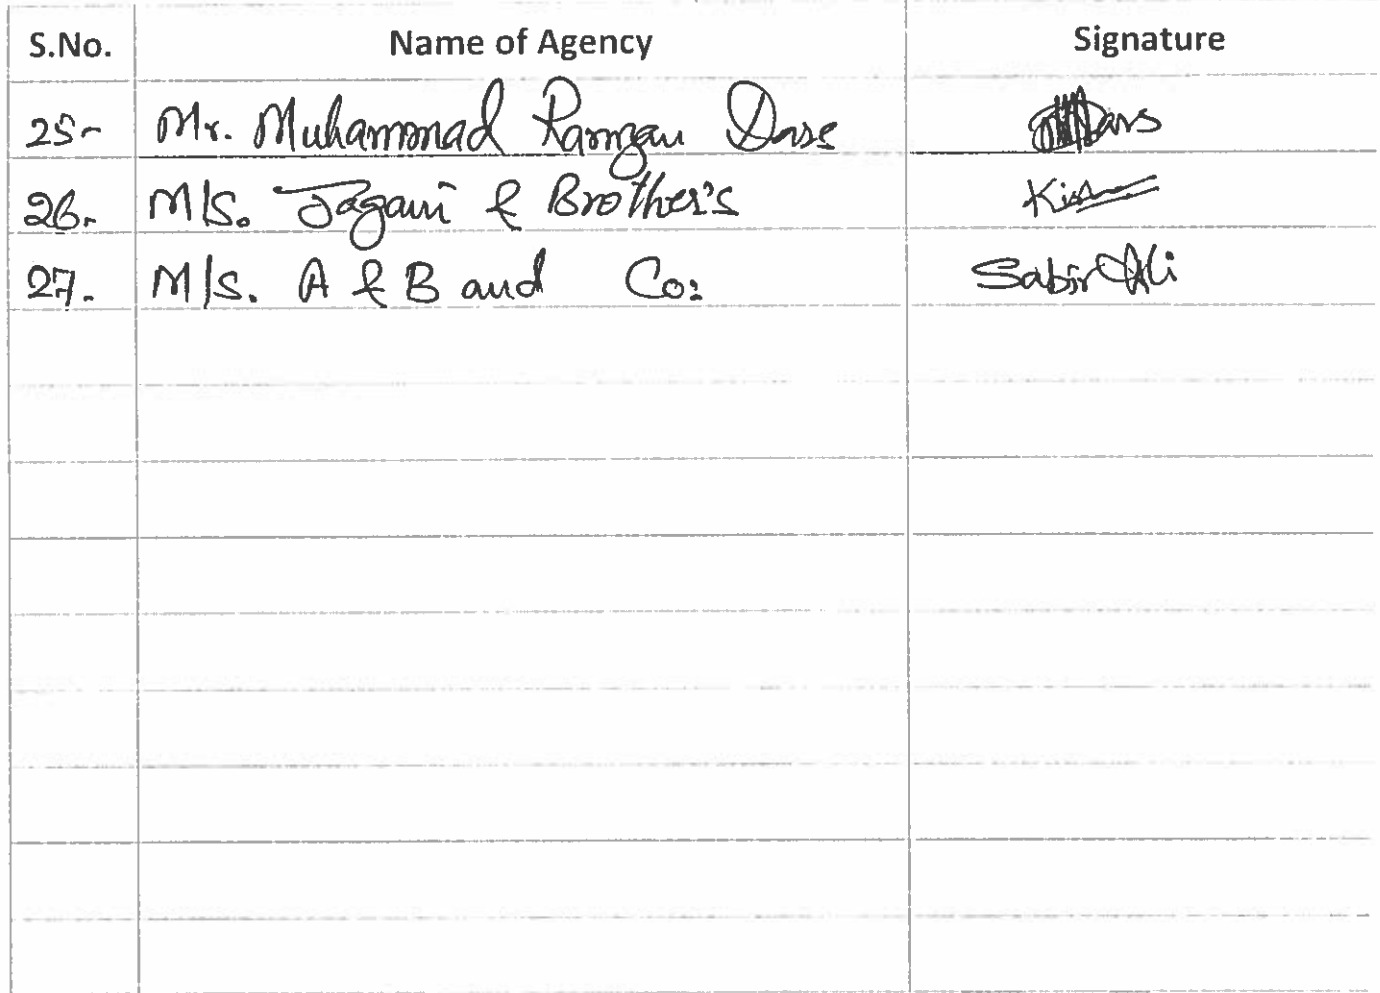 S.No. Name of Agency Signature
25- Mr. Muhammad Ramzan Dars
26. M/S. Jagani & Brother's
27. M/S. A & B and Co: Sabir Ali